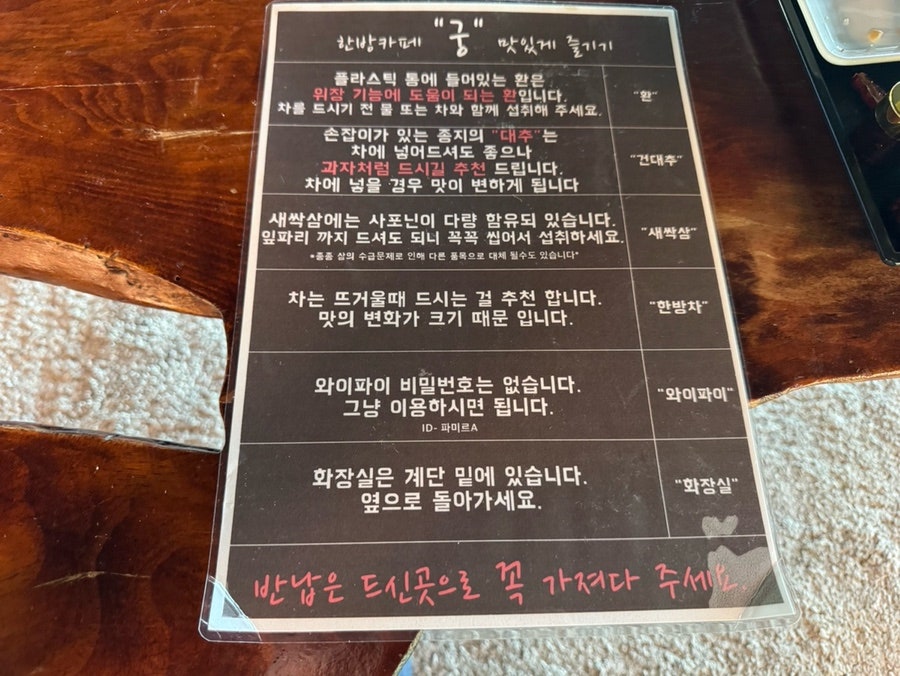 한방카페 "궁" 맛있게 즐기기
플라스틱 통에 들어있는 환은
위장 기능에 도움이 되는 환입니다.
차를 드시기 전 물 또는 차와 함께 섭취해 주세요.
"환"
손잡이가 있는 종지의 "대추"는
차에 넣어드셔도 좋으나
과자처럼 드시길 추천 드립니다.
차에 넣을 경우 맛이 변하게 됩니다
"건대추"
새싹삼에는 사포닌이 다량 함유되 있습니다.
잎파리 까지 드셔도 되니 꼭꼭 씹어서 섭취하세요.
*종종 삼의 수급문제로 인해 다른 품목으로 대체 될수도 있습니다*
"새싹삼"
차는 뜨거울때 드시는 걸 추천 합니다.
맛의 변화가 크기 때문 입니다.
"한방차"
와이파이 비밀번호는 없습니다.
그냥 이용하시면 됩니다.
ID- 파미르A
"와이파이"
화장실은 계단 밑에 있습니다.
옆으로 돌아가세요.
"화장실"
반납은 드신곳으로 꼭 가져다 주세요.